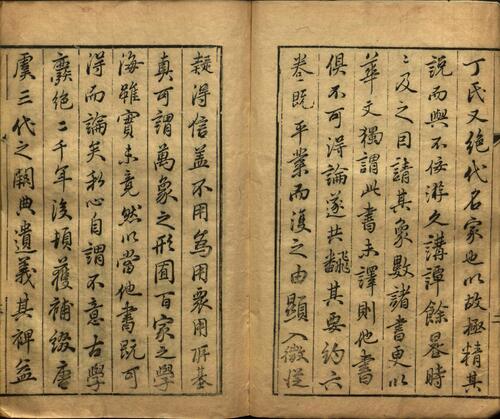 丁氏又絶代名家也以故極精其
說而與不佞游久講譚餘晷時
時及之因請其象數諸書更以
華文獨謂此書未譯則他書
俱不可得論遂共飜其要約六
卷既卒業而復之由顯入微從
疑得信葢不用為用衆用所基
真可謂萬象之形囿百家之學
海雖實未竟然以當他書既可
得而論矣私心自謂不意古學
廢絶二千年後頓獲補綴唐
虞三代之闕典遺義其裨益